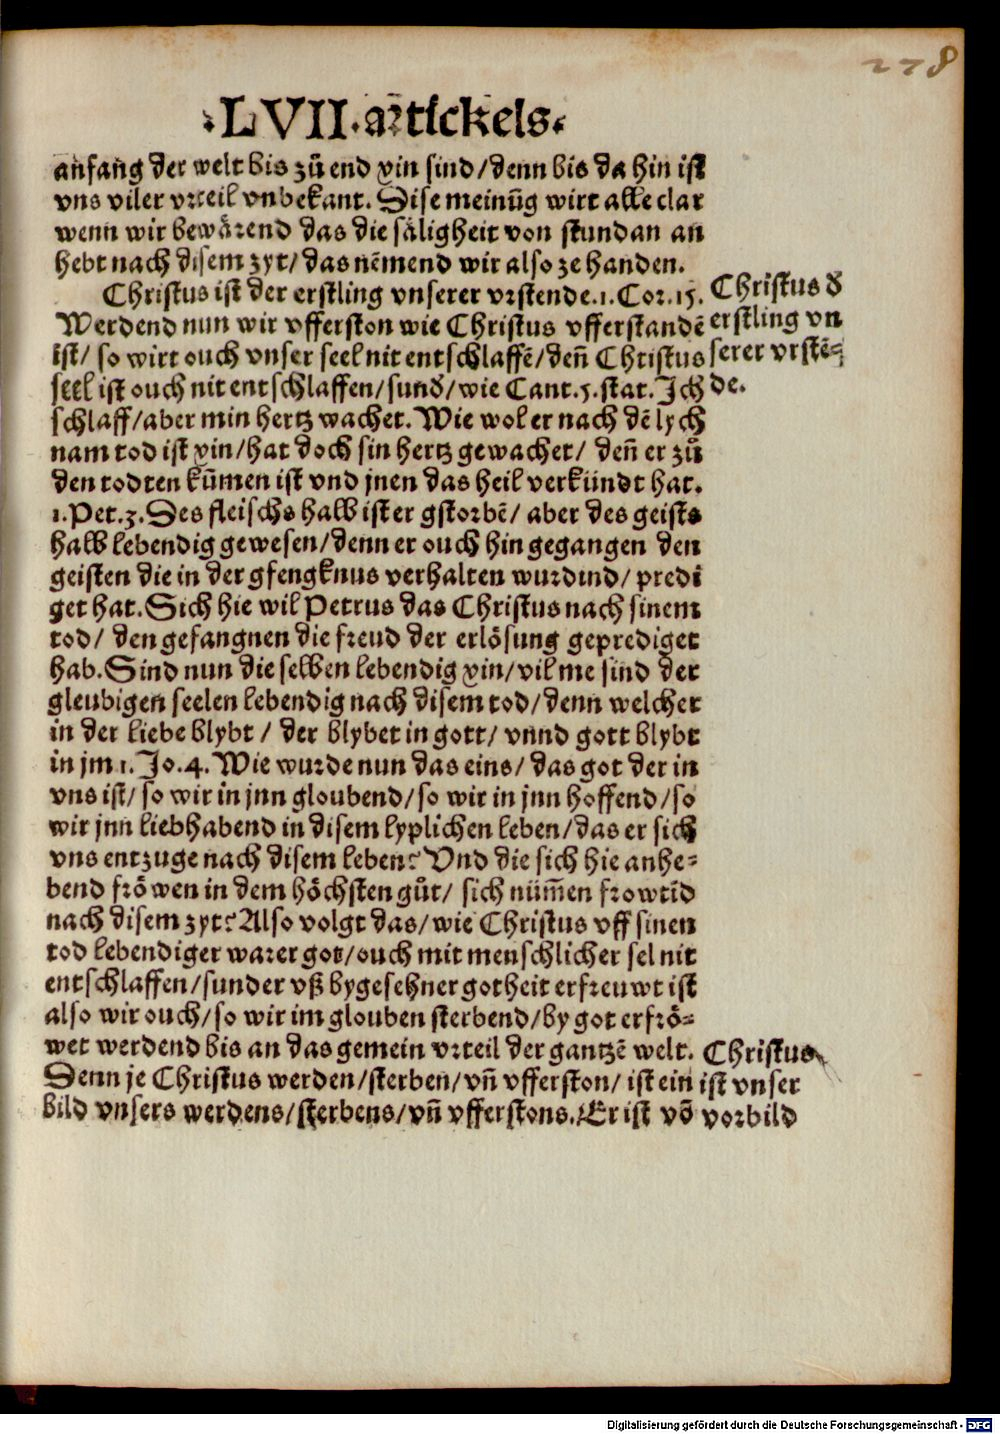 228
.LVII.artickels.
anfang der welt bis zů end xin sind/denn bis da hin ist
vns viler vrteil vnbekant. Dise meinũg wirt alle clar
wenn wir bewärend das die säligheit von stundan an
hebt nach disem zyt/das nẽmend wir also ze handen.
Christus ist der erstling vnserer vrstende.1.Cor.15.
Werdend nun wir vfferston wie Christus vfferstandẽ
ist/ so wirt ouch vnser seel nit entschlaffẽ/deñ Christus
seel ist ouch nit entschlaffen/sund̕/wie Cant.5.stat.Ich
schlaff/aber min hertz wachet. Wie wol er nach dẽ lych
nam tod ist xin/hat doch sin hertz gewachet/ deñ er zů
den todten kũmen ist vnd jnen das heil verkündt hat.
1.Pet.3.Des fleischs halb ist er gstorbẽ/ aber des geists
halb lebendig gewesen/denn er ouch hin gegangen den
geisten die in der gfengknus verhalten wurdind/ predi
get hat.Sich hie wil Petrus das Christus nach sinem
tod/ den gefangnen die freud der erlösung geprediget
hab.Sind nun die selben lebendig xin/vil me sind der
gleubigen seelen lebendig nach disem tod/denn welcher
in der liebe blybt / der blybet in gott/ vnnd gott blybt
in jm 1.Jo.4. Wie wurde nun das eins/ das got der in
vns ist/ so wir in jnn gloubend/so wir in jnn hoffend/so
wir jnn liebhabend in disem lyplichen leben/das er sich
vns entzuge nach disem leben? Vnd die sich hie anhe-
bend fröwen in dem höchsten gůt/ sich nüm̃en frowtĩd
nach disem zyt? Also volgt das/wie Christus vff sinen
tod lebendiger warer got/ouch mit menschlicher sel nit
entschlaffen/sunder vß bygesehner gotheit erfreuwt ist
also wir ouch/so wir im glouben sterbend/by got erfrö-
wet werdend bis an das gemein vrteil der gantzẽ welt.
Denn je Christus werden/sterben/vñ vfferston/ ist ein
bild vnsers werdens/sterbens/vñ vfferstons.Er ist võ
Christus d̕
erstling vn
serer vrstẽ-
de.
Christus
ist vnser
vorbild
Digitalisierung gefördert durch die Deutsche Forschungsgemeinschaft - DFG